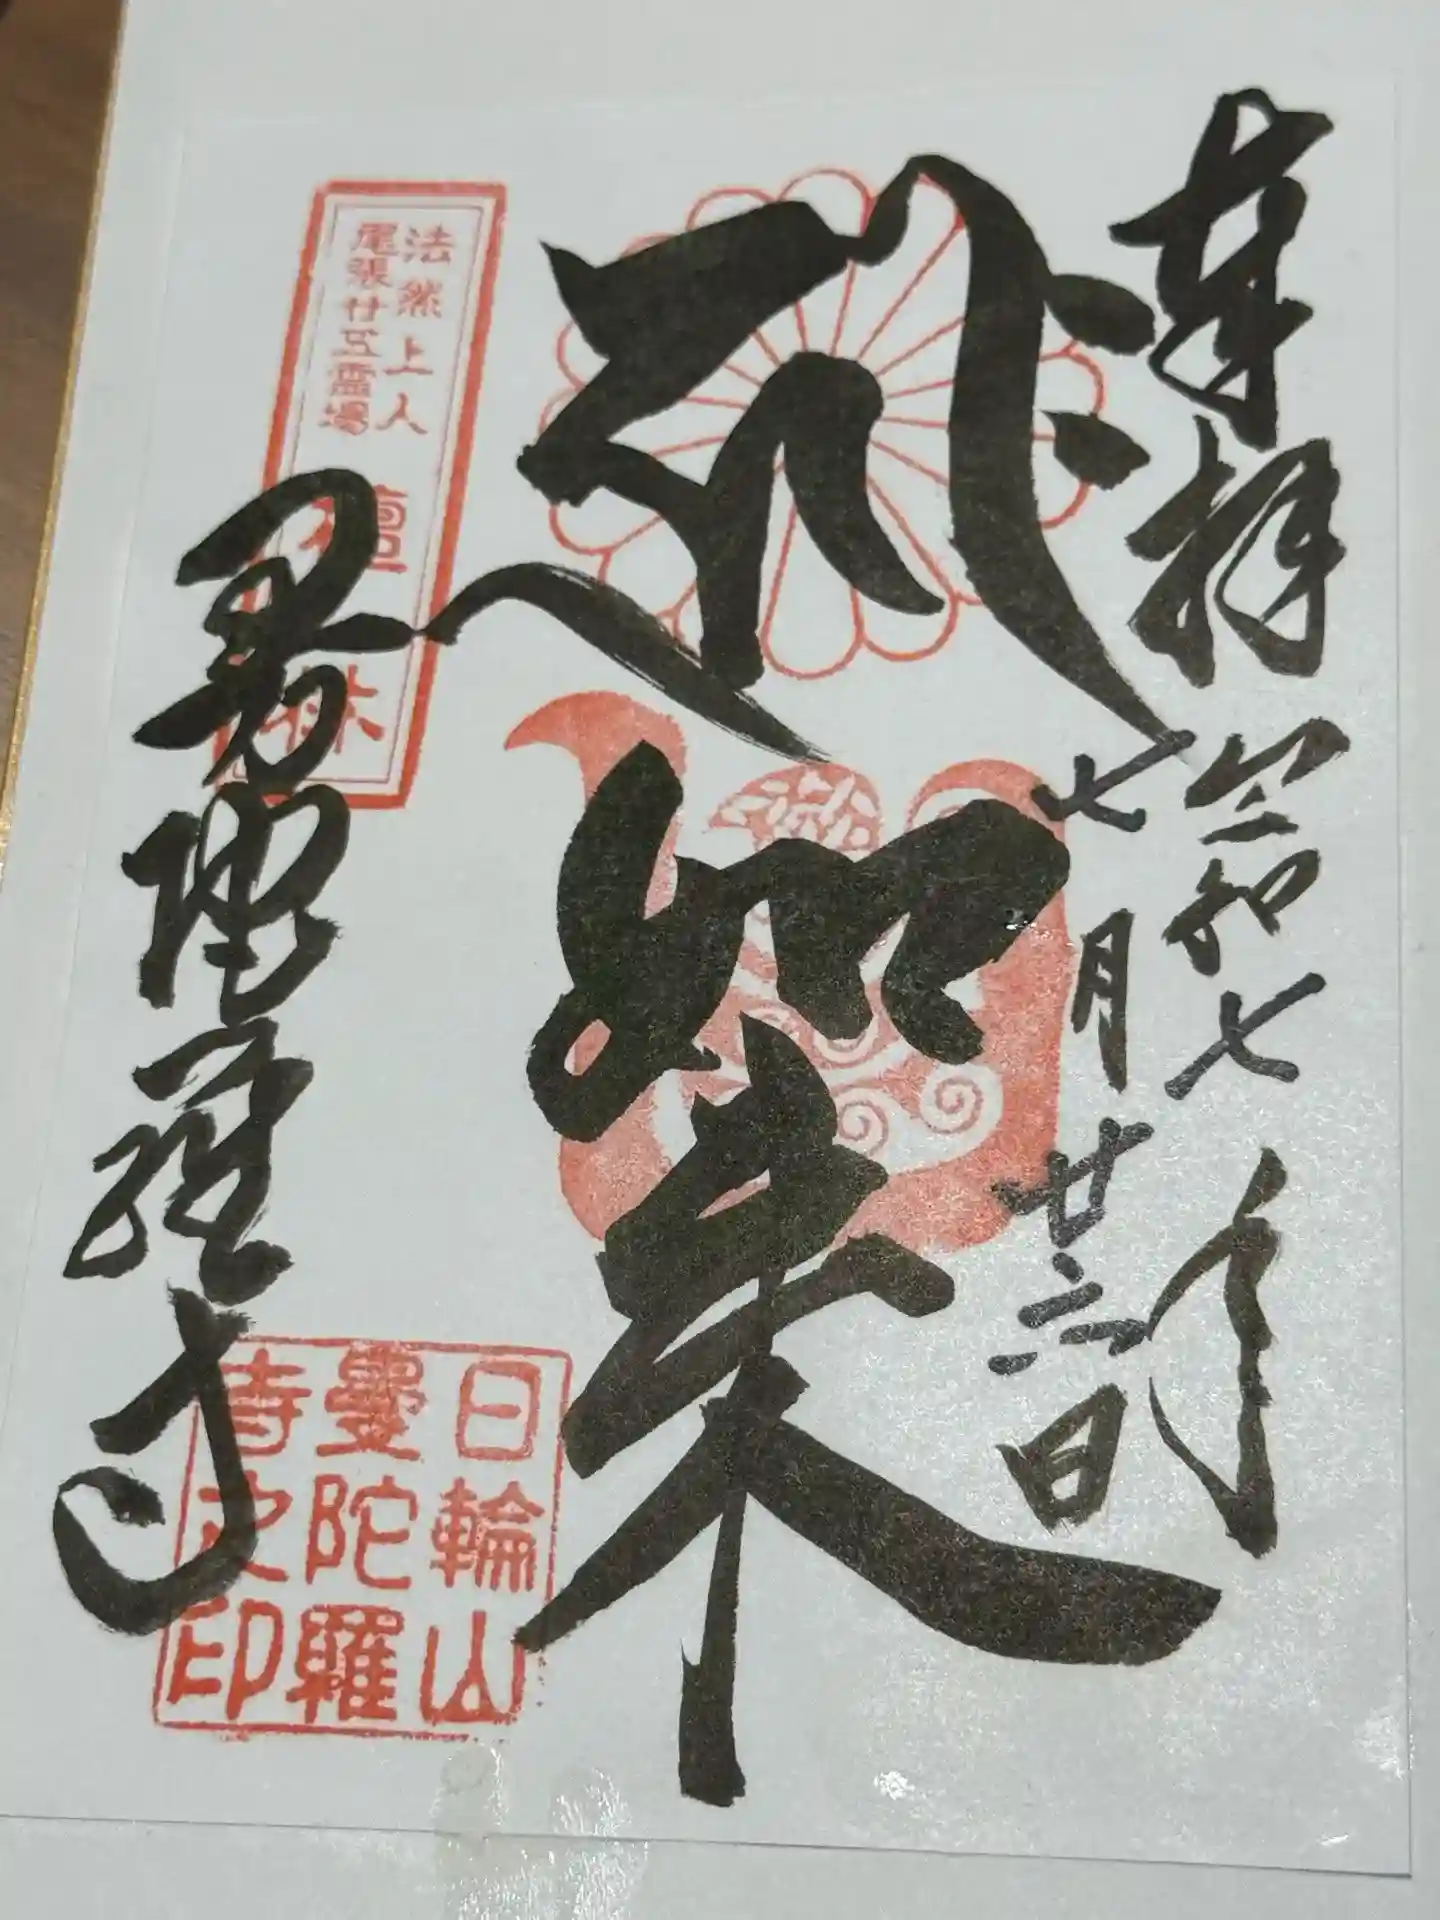 奉拝
令和七年
七月廿六日
如来
法然上人
尾張廿五霊場
檀林
曼陀羅寺
日輪山
曼陀羅
寺之印